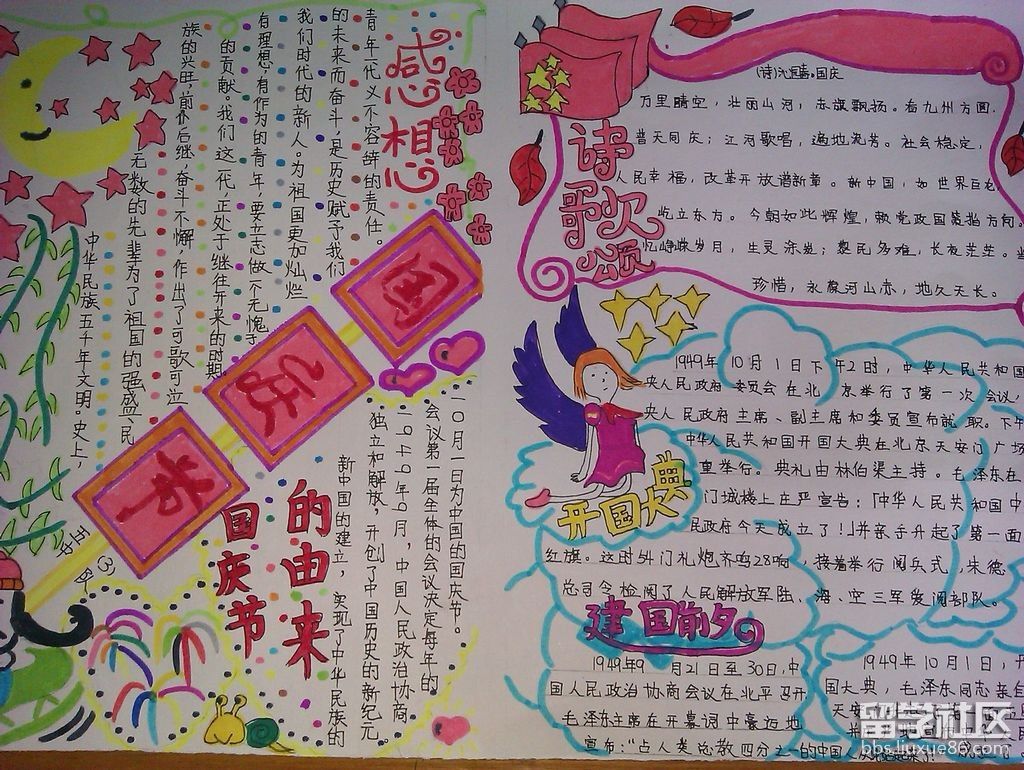 感想
青年一代义不容辞的责任。
的未来而奋斗，是历史赋予了我们
我们时代的新人。为祖国更加灿烂
有理想，有作为的青年，要立志做一个无愧于
的贡献。我们这一代，正处于继往开来的时期
族的兴旺，前仆后继，奋斗不懈，作出了可歌可泣
无数的先辈为了祖国的强盛、民
中华民族五千年文明。史上，
国
庆
节
五中队
(3)
国庆节
的由来
一〇月一日为中国的国庆节。
会议第一届全体的会议决定每年的
一九四九年九月，中国人民政治协商
独立和解放，开创了中国历史的新纪元。
新中国的建立，实现了中华民族的
诗歌颂
国庆
万里晴空，壮丽山河，赤旗飘扬。看九州方圆，
普天同庆；江河歌唱，遍地流芳。社会稳定，
人民幸福，改革开放谱新章。新中国，如世界巨
屹立东方。今朝如此辉煌，赖党政国策指方向。
忆峥嵘岁月，生灵涂炭；黎民多难，长夜茫茫。
珍惜，永葆河山赤，地久天长。
开国大典
1949年10月1日下午2时，中华人民共和国
央人民政府委员会在北京举行了第一次会议，
央人民政府主席、副主席和委员宣布就职。下午
中华人民共和国开国大典在北京天安门广场
重举行。典礼由林伯渠主持。毛泽东在
门城楼上庄严宣告：「中华人民共和国中
民政府今天成立了！」并亲手升起了第一面
红旗。这时54门礼炮齐鸣28响，接着举行阅兵式，朱德
总司令检阅了人民解放军陆、海、空三军受阅部队。
建国前夕
1949年9月21日至30日，中
国人民政治协商会议在北平召开
毛泽东主席在开幕词中豪迈地
宣布：“占人类总数四分之一的中国人
1949年10月1日，开
国大典，毛泽东同志亲自
天安
留学社区
bbs.liuxue86.com